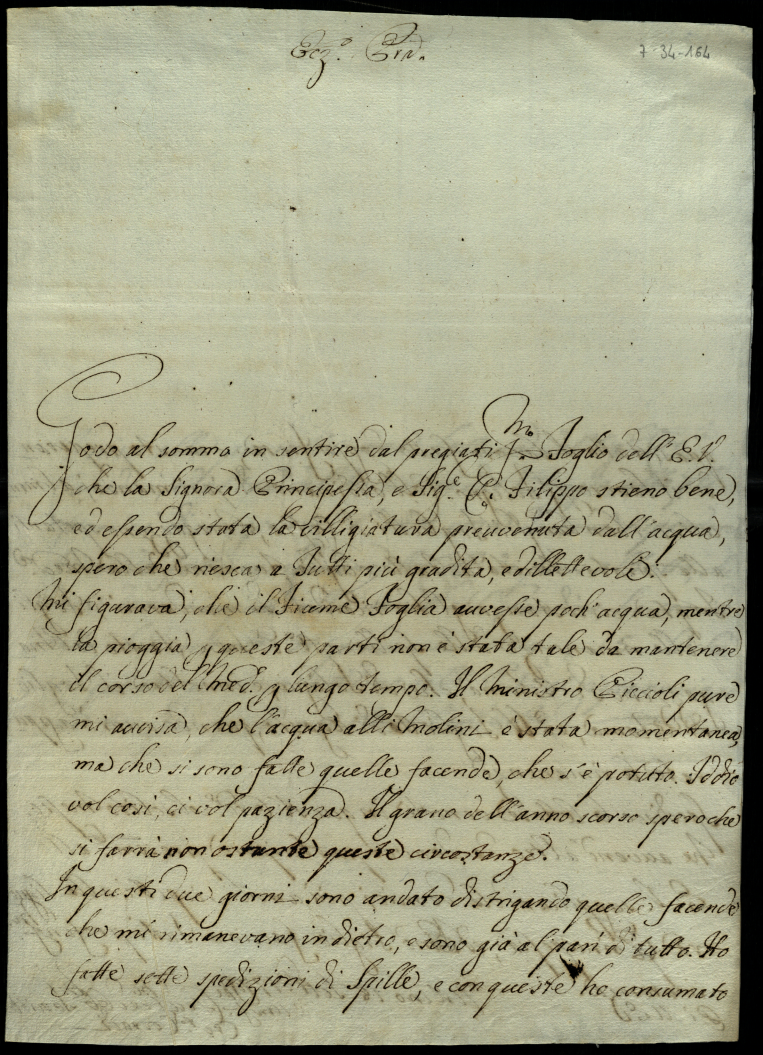 Ecz.ª Prn.
7-34-164
Godo al sommo in sentire dal pregiatiss.mo Foglio dell' E. V.
che la Signora Principessa, e Sig.e D. Filippo stieno bene,
ed essendo stata la villigiatura preuvenuta dall'acqua,
spero che riesca a Tutti più gradita, e dillettevole.
Mi figurava, che il Fiume Foglia auvesse poch'acqua, mentre
la pioggia p queste parti non è stata tale da mantenere
il corso del Med.º p lungo tempo. Il Ministro Piccioli pure
mi avvisa, che l'acqua alli Molini è stata momentanea,
ma che si sono fatte quelle facende, che s'è potuto. Iddio
vol così, ci vol pazienza. Il grano dell'anno scorso spero che
si farrà non ostante queste circostanze.
In questi due giorni sono andato distrigando quelle facende
che mi rimanevano in dietro, e sono già al pari di tutto. Ho
fatte sette spedizioni di Spille, e con queste ho consumato